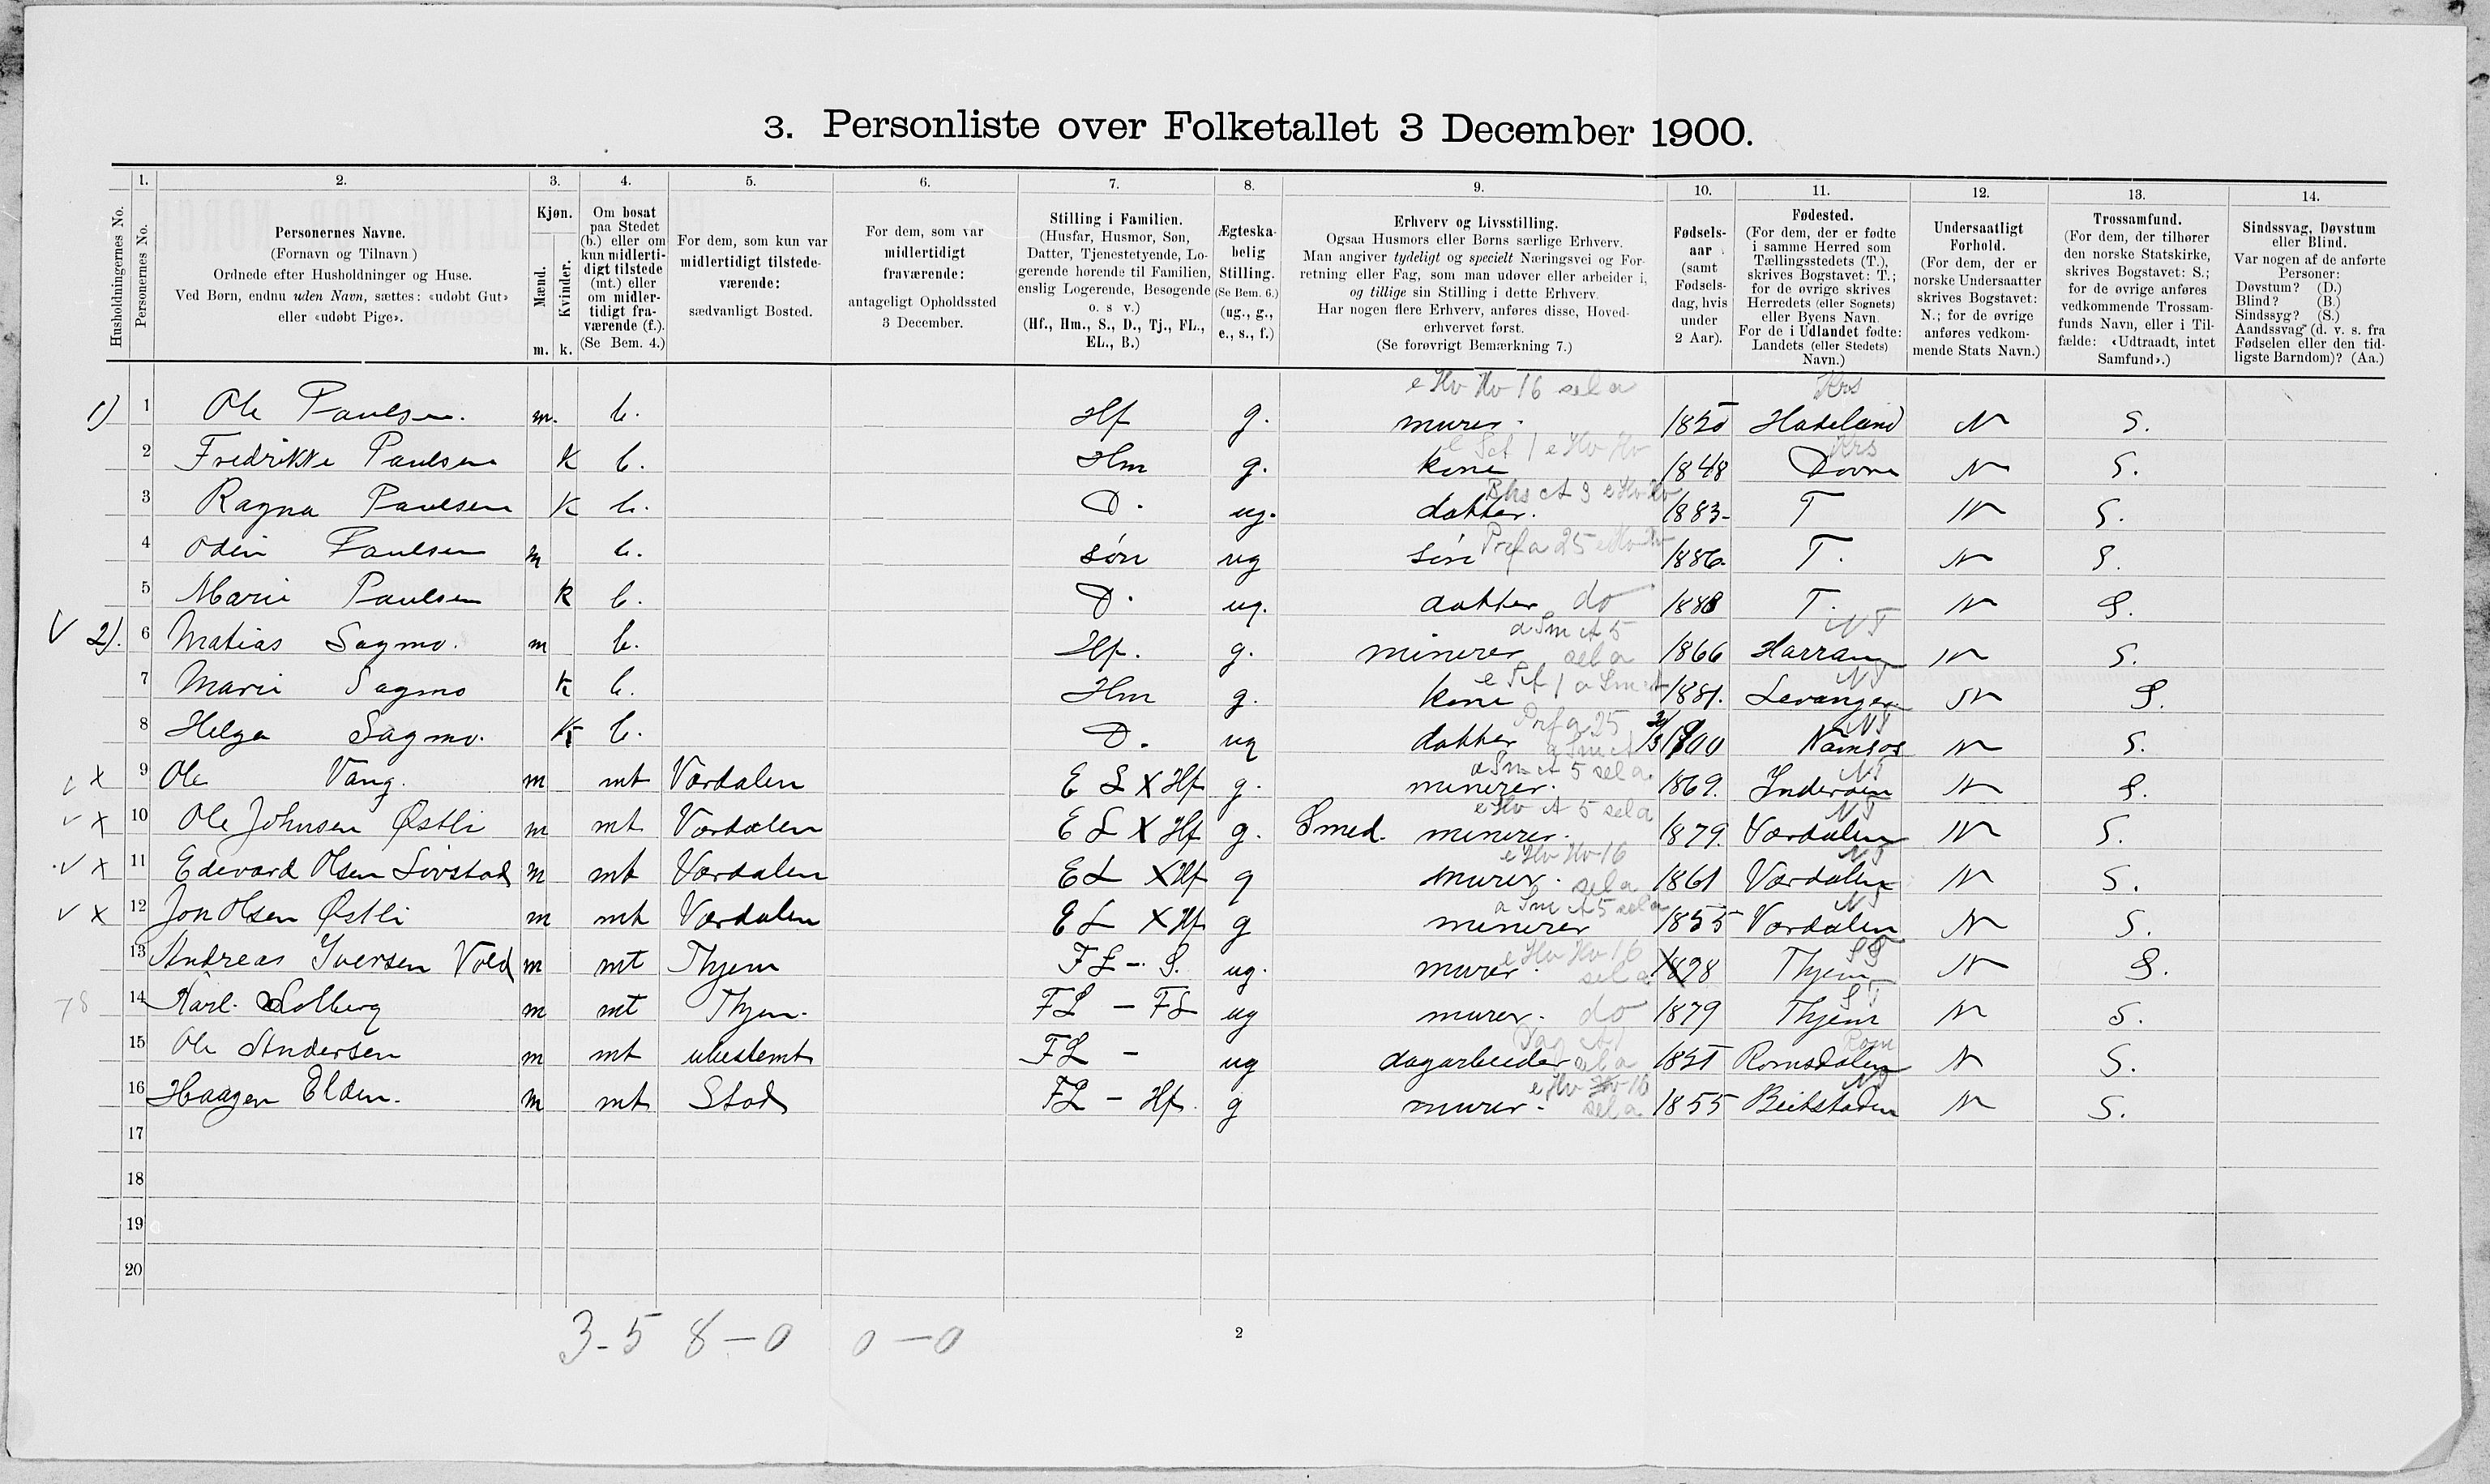 3. Personliste over Folketallet 3 December 1900.
1. 2. 3. 4. 5. 6. 7. 8. 9. 10. 11. 12. 13. 14.
Husholdningernes No.
Personernes No.
Personernes Navne.
(Fornavn og Tilnavn)
Ordnede efter Husholdninger og Huse.
Ved Børn, endnu uden Navn, sættes: «udøbt Gut»
eller «udøbt Pige».
Kjøn.
Mænd.
Kvinder.
m. k.
Om bosat
paa Stedet
(b.) eller om
kun midlerti-
digt tilstede
(mt.) eller
om midler-
tidigt fra-
værende (f.).
(Se Bem. 4.)
For dem, som kun var
midlertidigt tilstede-
værende:
sædvanligt Bosted.
For dem, som var
midlertidigt
fraværende:
antageligt Opholdssted
3 December.
Stilling i Familien.
(Husfar, Husmor, Søn,
Datter, Tjenestetyende, Lo-
gerende hørende til Familien,
enslig Logerende, Besøgende
o. s v.)
(Hf., Hm., S., D., Tj., FL.,
EL., B.)
Ægteska-
belig
Stilling.
(Se Bem. 6.)
(ug., g.,
e., s., f.)
Erhverv og Livsstilling.
Ogsaa Husmors eller Børns særlige Erhverv.
Man angiver tydeligt og specielt Næringsvei og For-
retning eller Fag, som man udover eller arbeider i,
og tillige sin Stilling i dette Erhverv.
Har nogen flere Erhverv, anføres disse, Hoved-
erhvervet først.
(Se forøvrigt Bemærkning 7.)
Fødsels-
aar
(samt
Fødsels-
dag, hvis
under
2 Aar).
Fødested.
(For dem, der er fødte
i samme Herred som
Tællingsstedets (T.),
skrives Bogstavet: T.;
for de øvrige skrives
Herredets (eller Sognets)
eller Byens Navn.
For de i Udlandet fødte:
Landets (eller Stedets)
Navn.)
Undersaatligt
Forhold.
(For dem, der er
norske Undersaatter
skrives Bogstavet:
N.; for de øvrige
anføres vedkom-
mende Stats Navn.)
Trossamfund.
(For dem, der tilhører
den norske Statskirke,
skrives Bogstavet: S.;
for de øvrige anføres
vedkommende Trossam-
funds Navn, eller i Til-
fælde: «Udtraadt, intet
Samfund».)
Sindssvag, Døvstum
eller Blind.
Var nogen af de anførte
Personer:
Døvstum? (D.)
Blind? (B.)
Sindssyg? (S.)
Aandssvag (d. v. s. fra
Fødselen eller den tid-
ligste Barndom)? (Aa.)
e Hv Hv 16 sel a Krs
1) 1 Ole Paulsen. m. b. Hf g. murer. Hadeland N S.
e Sct 1 e Hv Hv Krs
2 Fredrikke Paulsen K b. Hm g. kone 1848 Dovre N S.
3 Ragna Paulsen K b. D. ug. datter. 1883- T N S.
4 Odin Paulsen m b. søn ug søn 1886. T. N S.
5 Marie Paulsen K b. D. ug. datter do 1888 T. N S.
a Sm ct 5 NT
V 2). 6 Matias Sagmo. m b. Hf. g. minerer sel a 1866 Harran N S.
NT
7 Marie Sagmo K b. Hm g. kone 1881. Levanger N S.
Prfa 25 NT
8 Helga Sagmo. K b. D. ug datter 1900 Namsos N S.
a Sm ct 5 sel a. NT
x 9 Ole Vang. m mt Værdalen E L X Hf g. minerer. 1869. Inderøen N S.
e Hv ct 5 sel a NT
v x 10 Ole Johnsen Østli m mt Værdalen E L X Hf g. Smed. minerer. 1879. Værdalen N S.
e Hv Hv 16 NT
v x 11 Edevard Olsen Lovstad m mt Værdalen EL X Hf g murer. sel a 1861 Værdalen N S.
a Sm ct 5 sel a NT
v x 12 Jon Olsen Østli m mt Værdalen EL X Hf g minerer 1855 Værdalen N S.
e Hv Hv 16 ST
13 Andreas Iversen Vold m mt Thjem FL - S. ug. murer. sel a 1828 Thjem N S.
ST
78 14 Karl Solberg m mt Thjem. FL - FL ug murer. do 1879 Thjem N S.
Dag ct 1 Rom
15 Ole Andersen m mt ubestemt FL - ug dagarbeider sel a Romsdalen N S.
e Hv Hv 16 NT
16 Haagen Elden. m mt Stod FL - Hf. g murer. sel a 1855 Beitstaden N S.
17
18
19
20
3-5 8-0 0-0
2